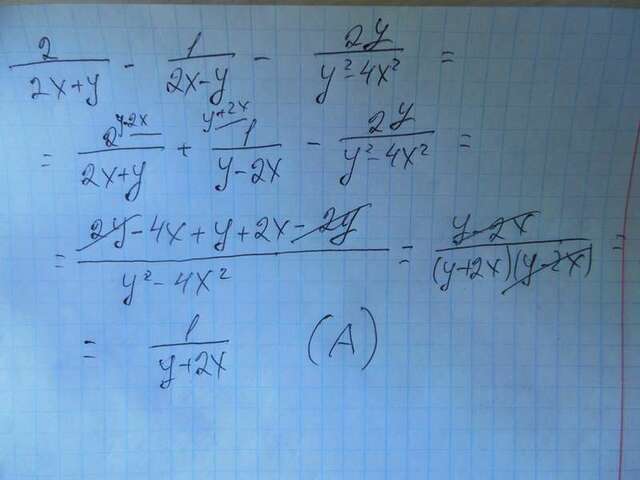 2/(2x+y) - 1/(2x-y) - 2y/(y²-4x²) =
= 2^(y-2x)/(2x+y) + 1^(y+2x)/(y-2x) - 2y/(y²-4x²) =
= (2y-4x+y+2x-2y)/(y²-4x²) = (y-2x)/((y+2x)(y-2x)) =
= 1/(y+2x) (A)